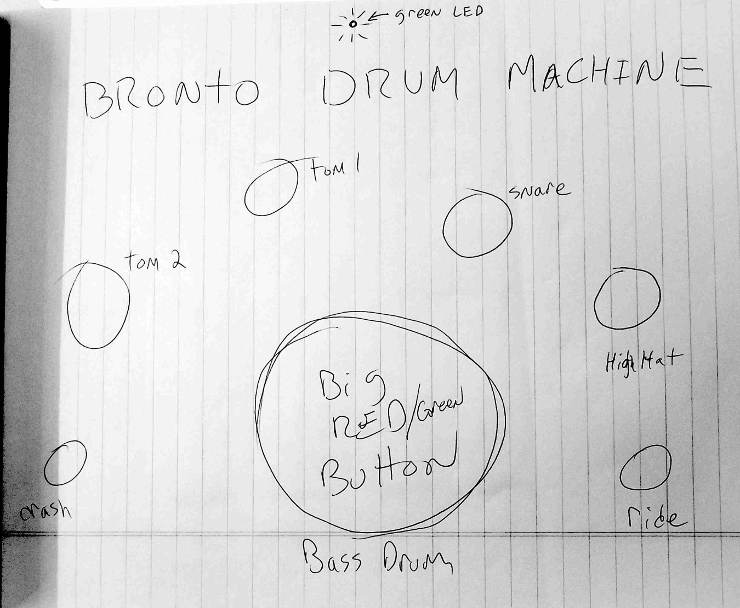 green LED
BRONTO DRUM MACHINE
TOM 1
SNare
TOM 2
High Hat
Big
RED/Green
Button
crash
ride
Bass Drum